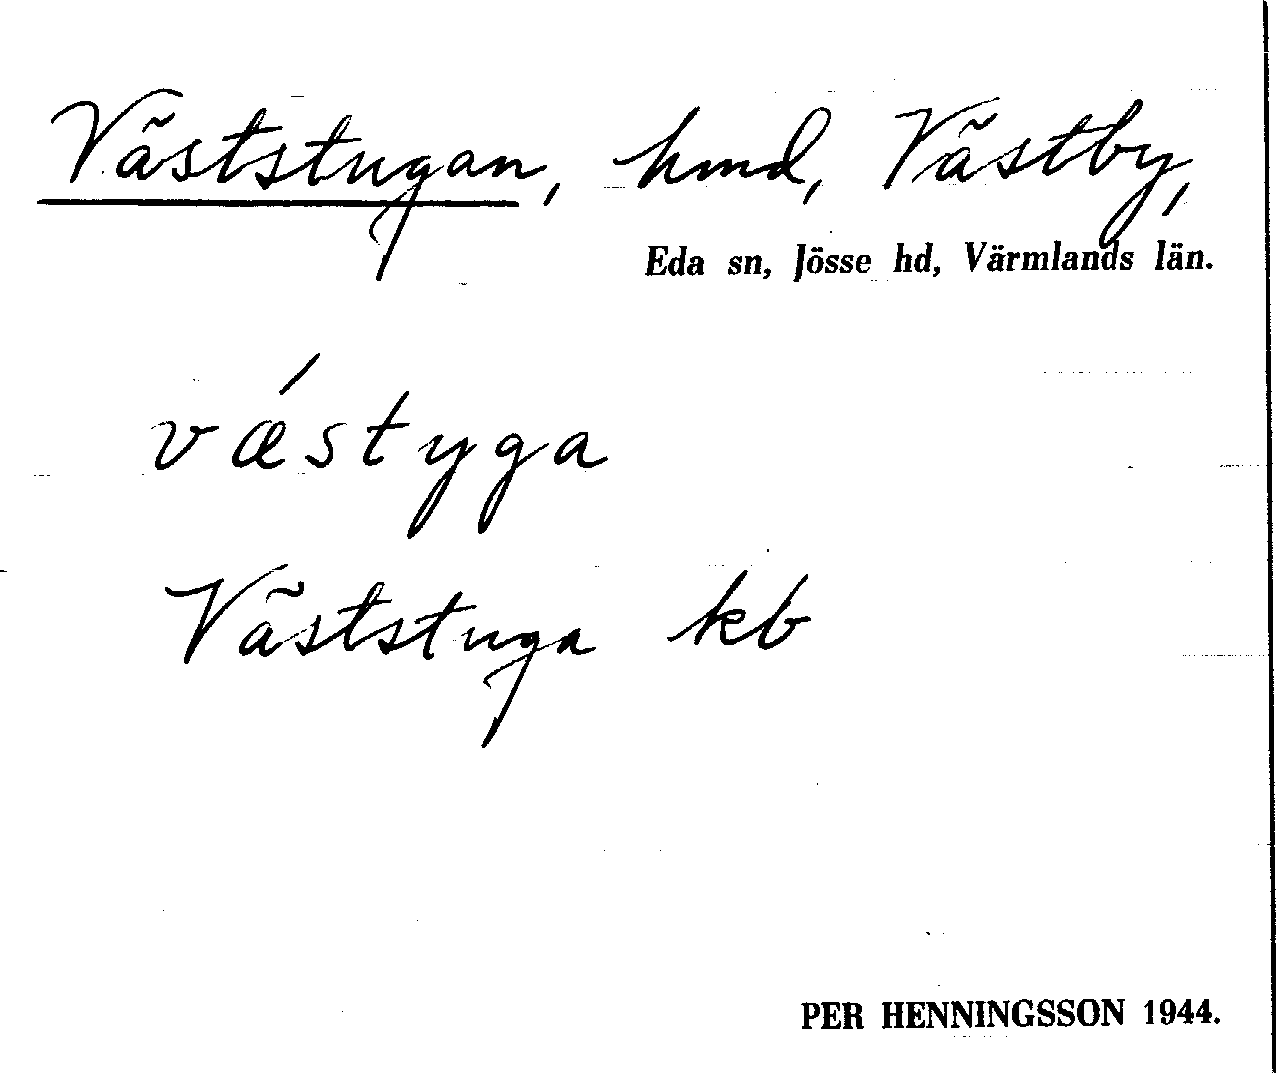 Väststugan, hmd, Västby,
Eda sn, Jösse hd, Värmlands län.
vǽstyga
Väststuga kb
PER HENNINGSSON 1944.